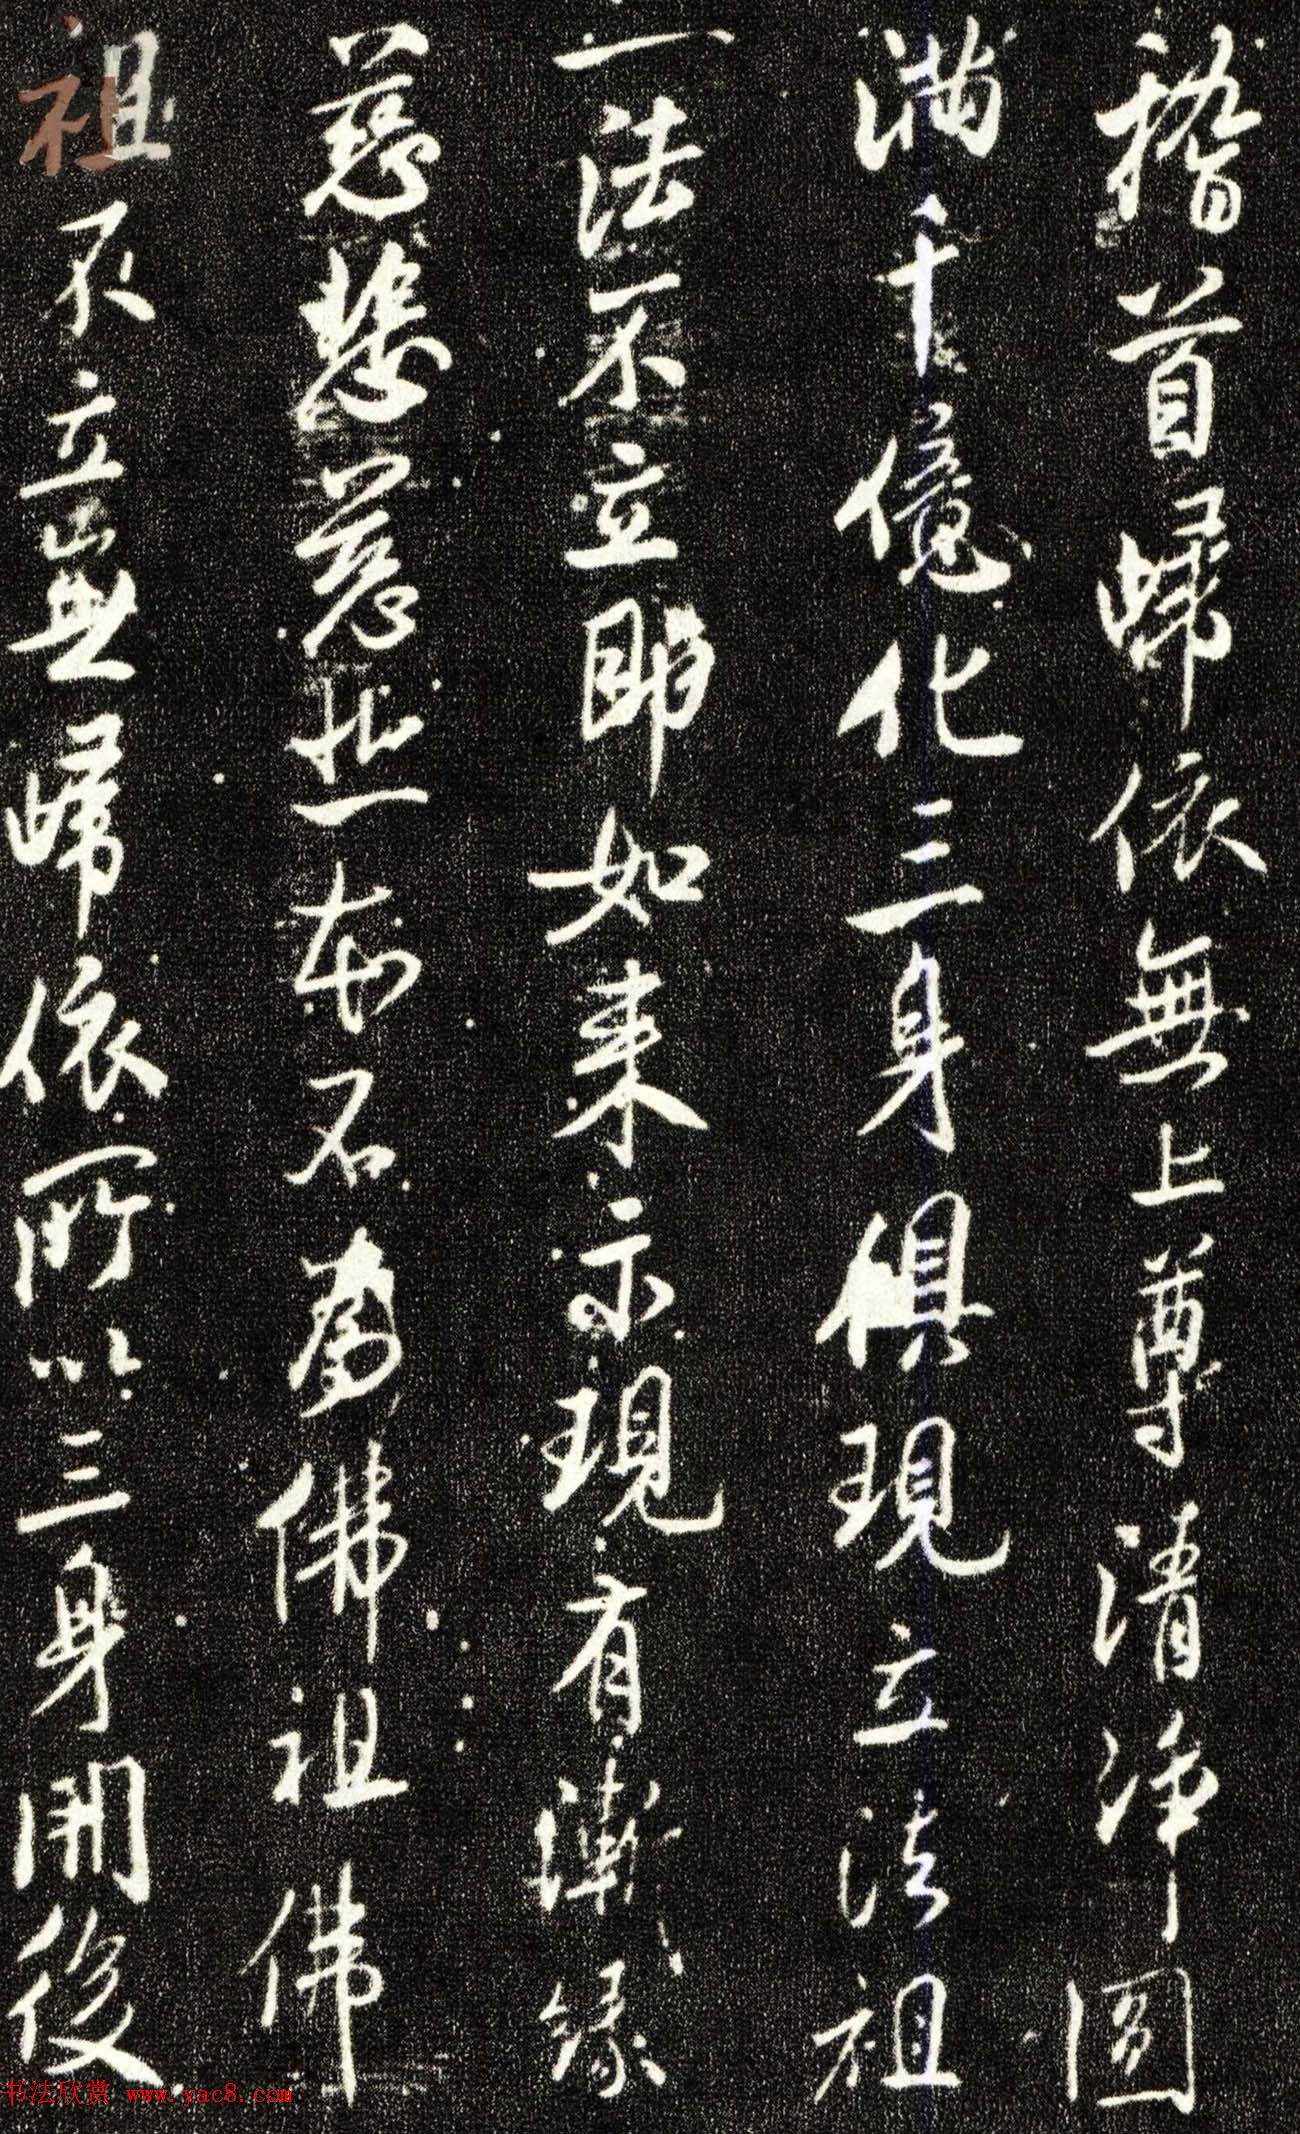 稽首歸依無上尊清淨圓
滿千億化三身俱現立法祖
一法不立即如來示現有緣
慈慈本不為佛祖佛
祖不立豈無歸依所以三身開後
书法欣赏 www.yac8.com